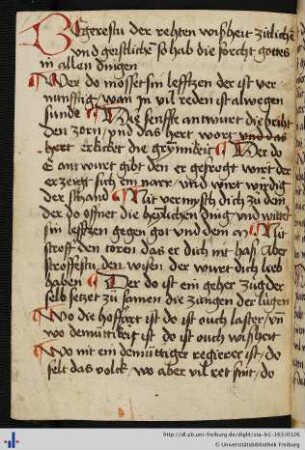 Begerestu der rehten wißheit zitlich
vnd geistlich so hab die forcht gottes
in allen dingen
Wer do mosset sin lefftzen der ist ver
nunfftig / wan in vil reden ist alwegen
sunde Die senffte antwurt die briht
den zorn / vnd das hert wort
hert erkicket die grymikeit Der do
E antwurt gibt den er gefrogt wurt der
er zeugt sich ein narr vnd wirt wirdig
der schand Nit vermysch dich zu dem
der do offnet die heimlichen ding vnd wittet
sin lefftzen gegen got vnd dem an Nit
stroff den toren das er dich nit haß Aber
stroffestu den wisen der wurt dich lieb
haben Der do ist ein geher zúg der
selb setzet zu samen die zungen der lugen
Wo die hoffart ist do ist ouch laster / vn
wo demuttikeit ist do ist ouch wißheit
Wo nit ein demuttiger regierer ist / do
felt das volck / wo aber vil ret sint / do
http://dl.ub.uni-freiburg.de/diglit/
© Universitätsbibliothek Freiburg